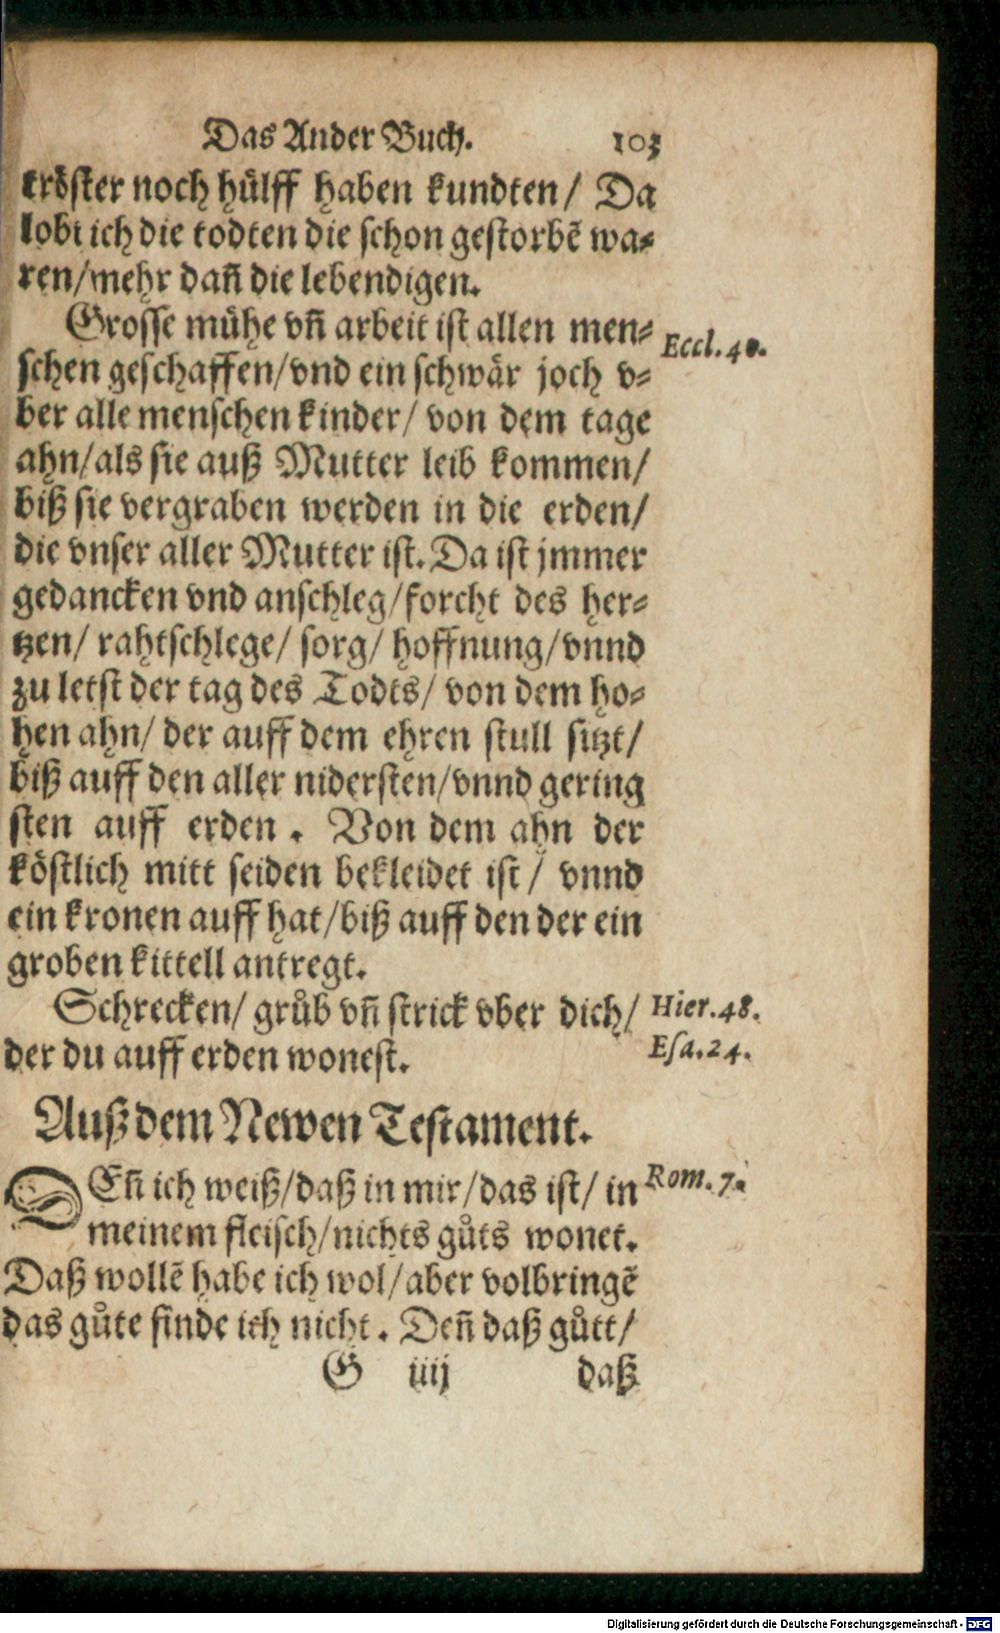 Das Ander Buch. 103
tröster noch hülff haben kundten/ Da
lobt ich die todten die schon gestorbẽ wa⸗
ren/mehr dañ die lebendigen.
Grosse mühe vñ arbeit ist allen men⸗
Eccl.40.
schen geschaffen/vnd ein schwär joch v⸗
ber alle menschen kinder/ von dem tage
ahn/als sie auß Mutter leib kommen/
biß sie vergraben werden in die erden/
die vnser aller Mutter ist. Da ist jmmer
gedancken vnd anschleg/forcht des her⸗
tzen/ rahtschlege/ sorg/ hoffnung/vnnd
zu letst der tag des Todts/ von dem ho⸗
hen ahn/ der auff dem ehren stull sitzt/
biß auff den aller nidersten/vnnd gering
sten auff erden. Von dem ahn der
köstlich mitt seiden bekleidet ist/ vnnd
ein kronen auff hat/biß auff den der ein
groben kittell antregt.
Schrecken/ grůb vñ strick vber dich/
Hier.48.
der du auff erden wonest.
Esa.24.
Auß dem Newen Testament.
DEñ ich weiß/daß in mir/das ist/ in
Rom.7.
meinem fleisch/nichts gůts wonet.
Daß wollẽ habe ich wol/aber volbringẽ
das gůte finde ich nicht. Deñ daß gůtt/
G iiij daß
Digitalisierung gefördert durch die Deutsche Forschungsgemeinschaft - DFG